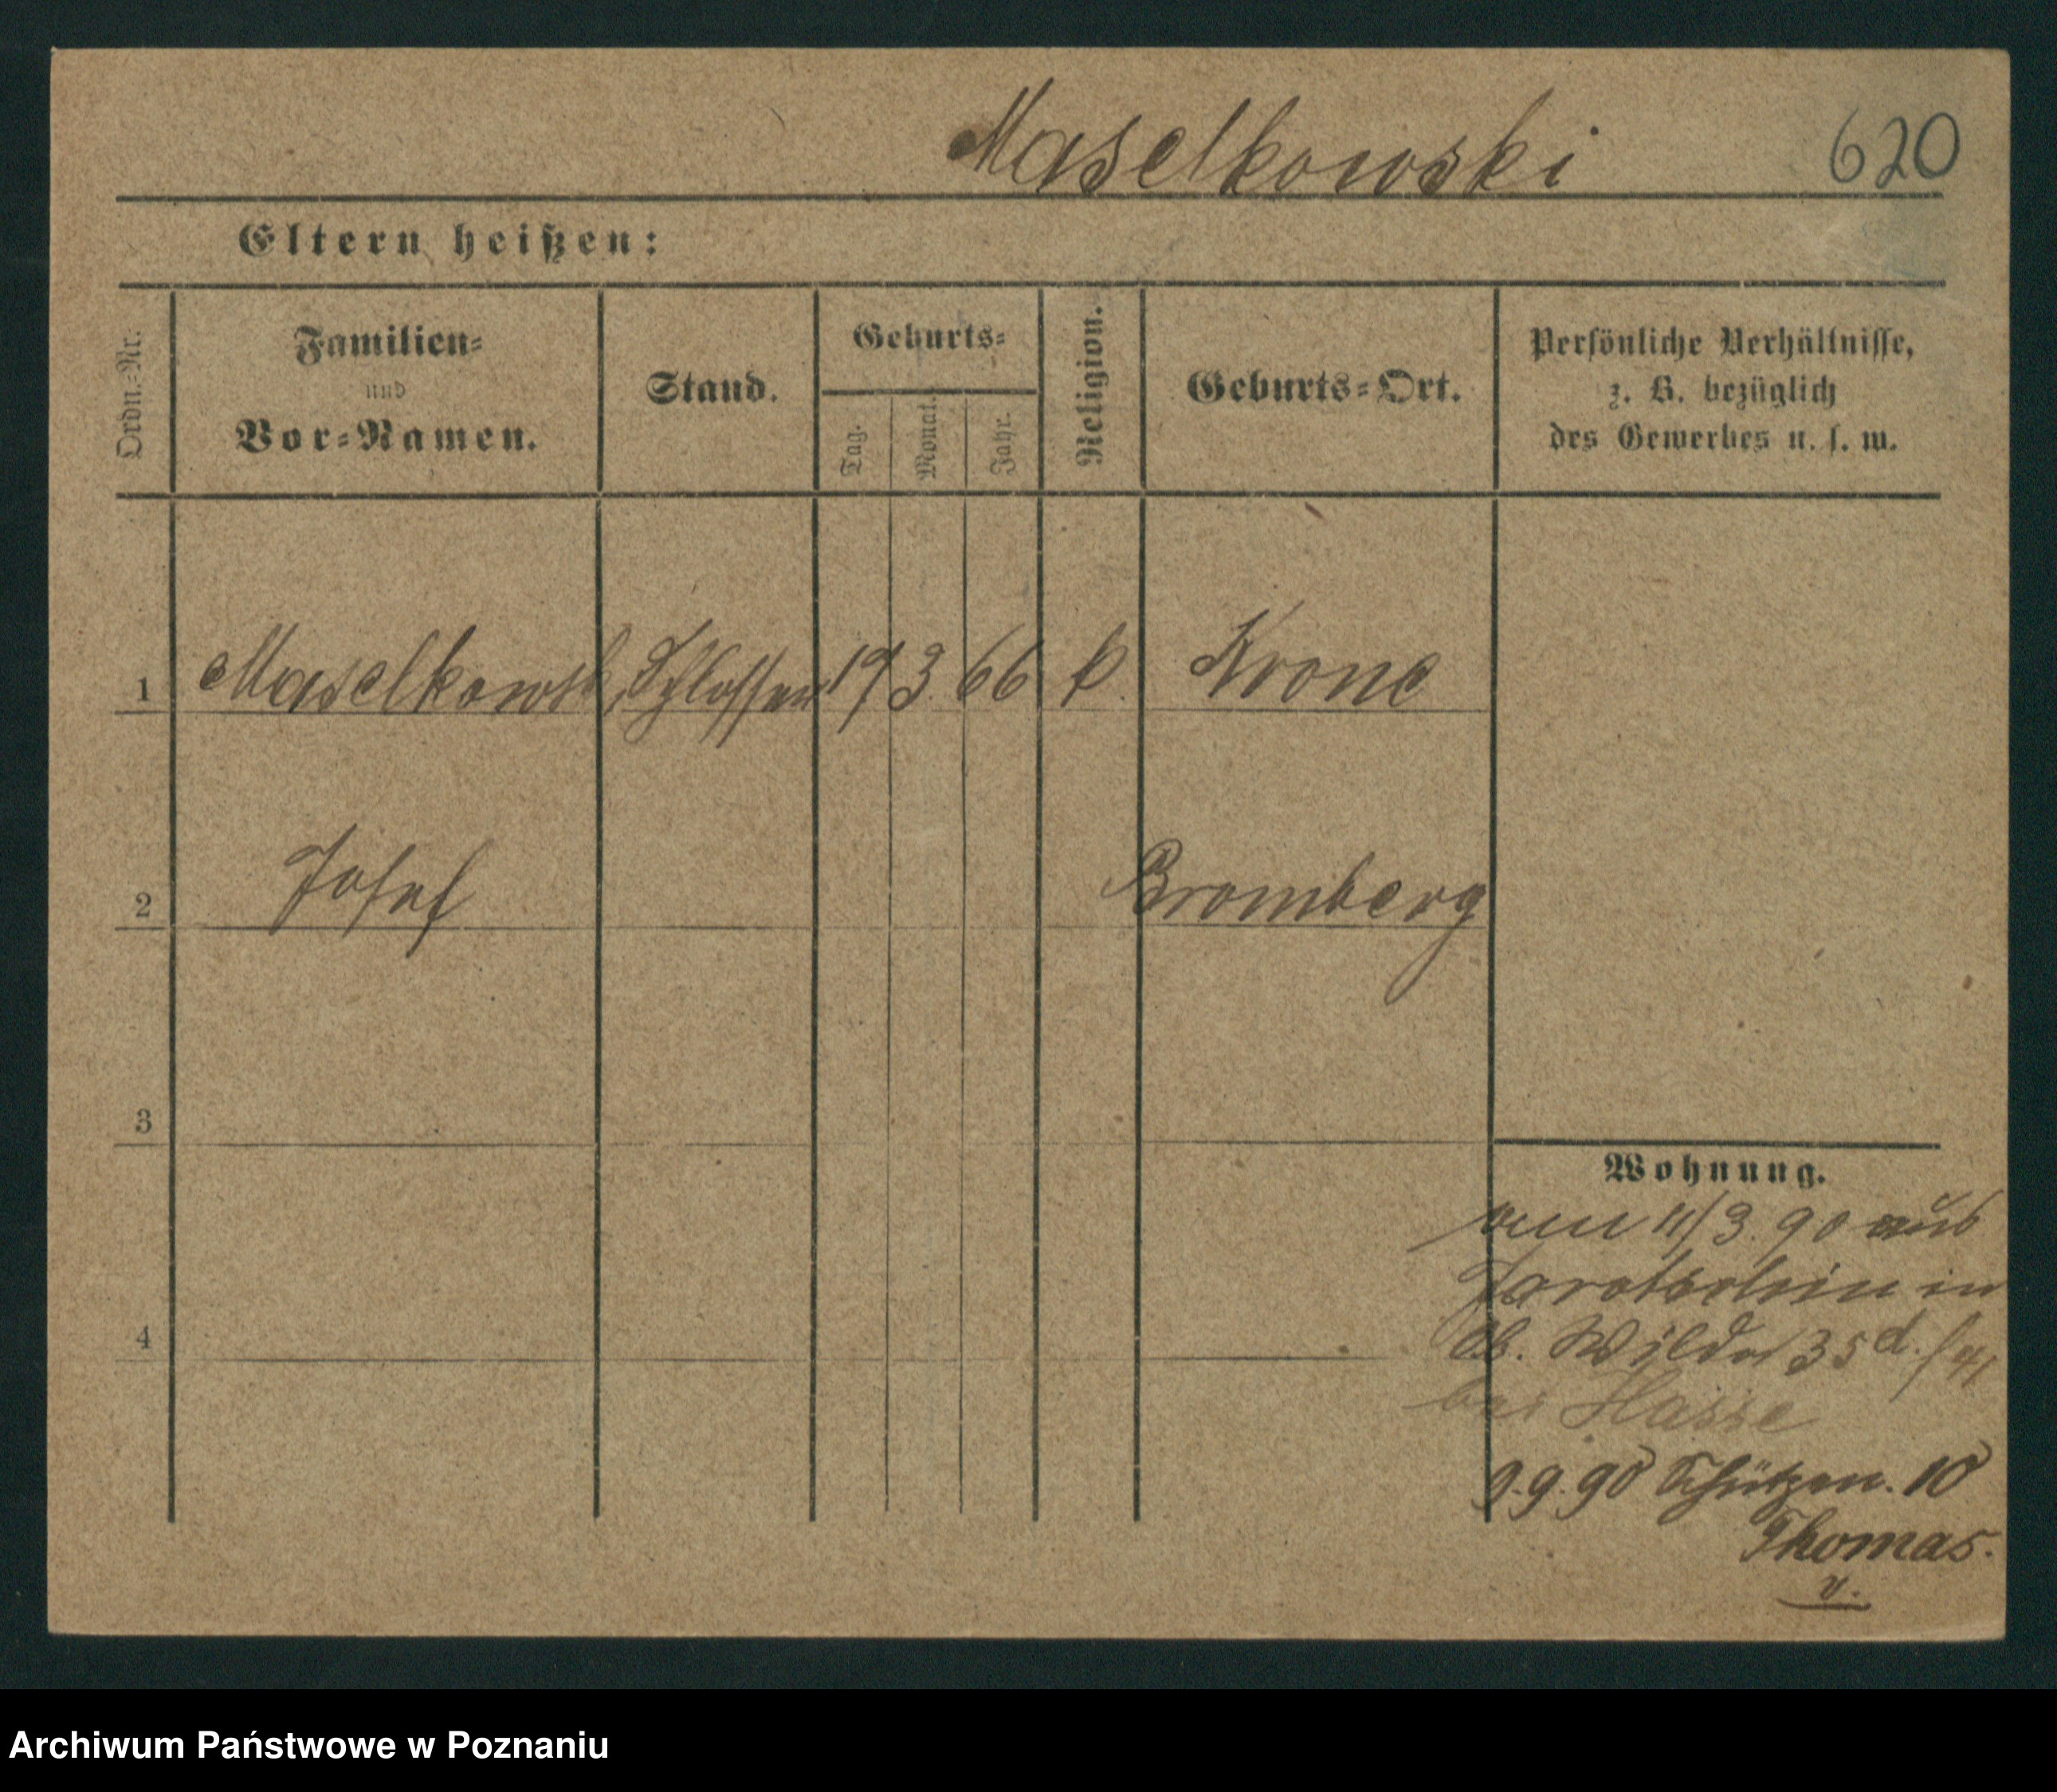 Maselkowski 620
Eltern heißen:
Ordn.-Nr.
Familien-
und
Vor-Namen.
Stand.
Geburts-
Tag.
Monat.
Jahr.
Religion.
Geburts-Ort.
Persönliche Verhältnisse,
z. B. bezüglich
des Gewerbes u. s. w.
1 Maselkowski Schlosser 19 3. 66 k. Krone
2 Josef Bromberg
3
Wohnung.
11/3. 90 aus
Jarotschin in
Ob. Wilda 35 d.
4
bei Hasse
9.9.90 Schützen. 10
Thomas.
v.
Archiwum Państwowe w Poznaniu